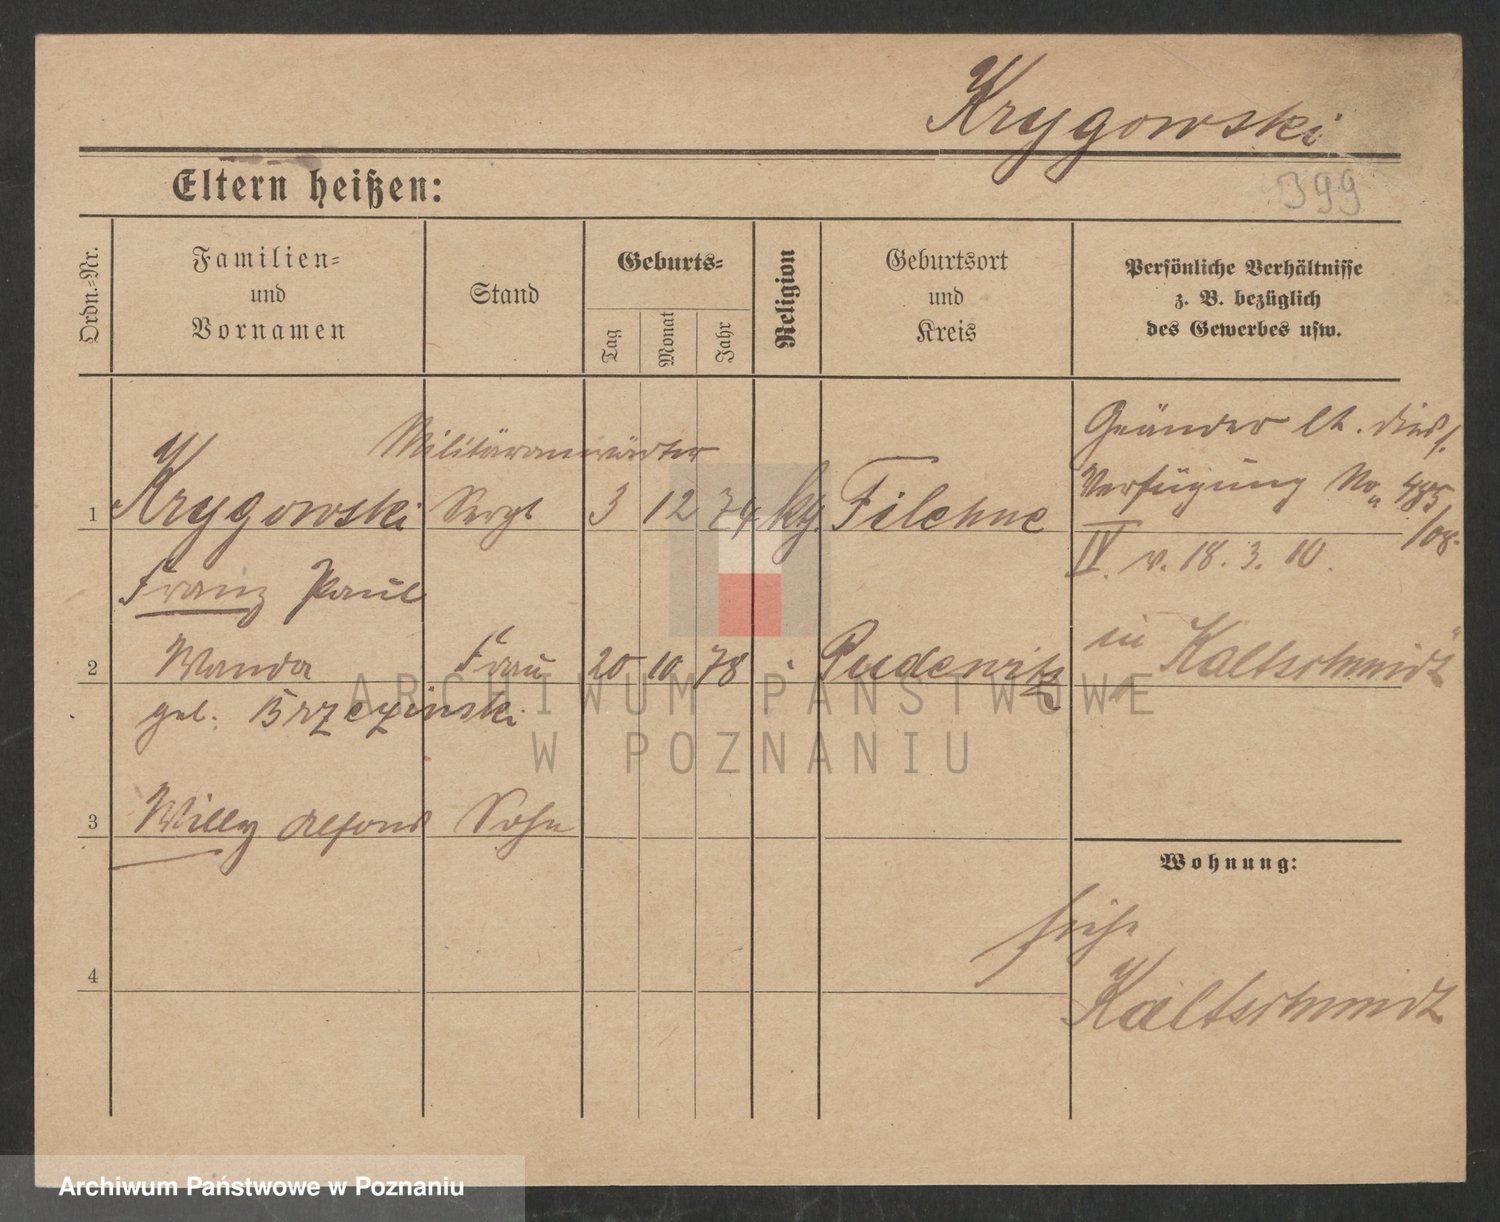 Krygowski
399
Eltern heißen:
Ordn.-Nr.
Familien-
und
Vornamen
Stand
Geburts-
Tag
Monat
Jahr
Religion
Geburtsort
und
Kreis
Persönliche Verhältnisse
z. B. bezüglich
des Gewerbes usw.
Militäranwärter
1 Krygowski Sergt 3 12 74 kg. Filehne
Franz Paul
Geändert lt. diess.
Verfügung No. 485
/08.
IV. v. 18. 3. 10.
in "Kaltschmidt"
2 Wanda Frau 20 10 78 Pudewitz
geb. Brzezinski
3 Willy Alfons Sohn
4
Wohnung:
siehe
Kaltschmidt
ARCHIWUM PAŃSTWOWE
W POZNANIU
Archiwum Państwowe w Poznaniu